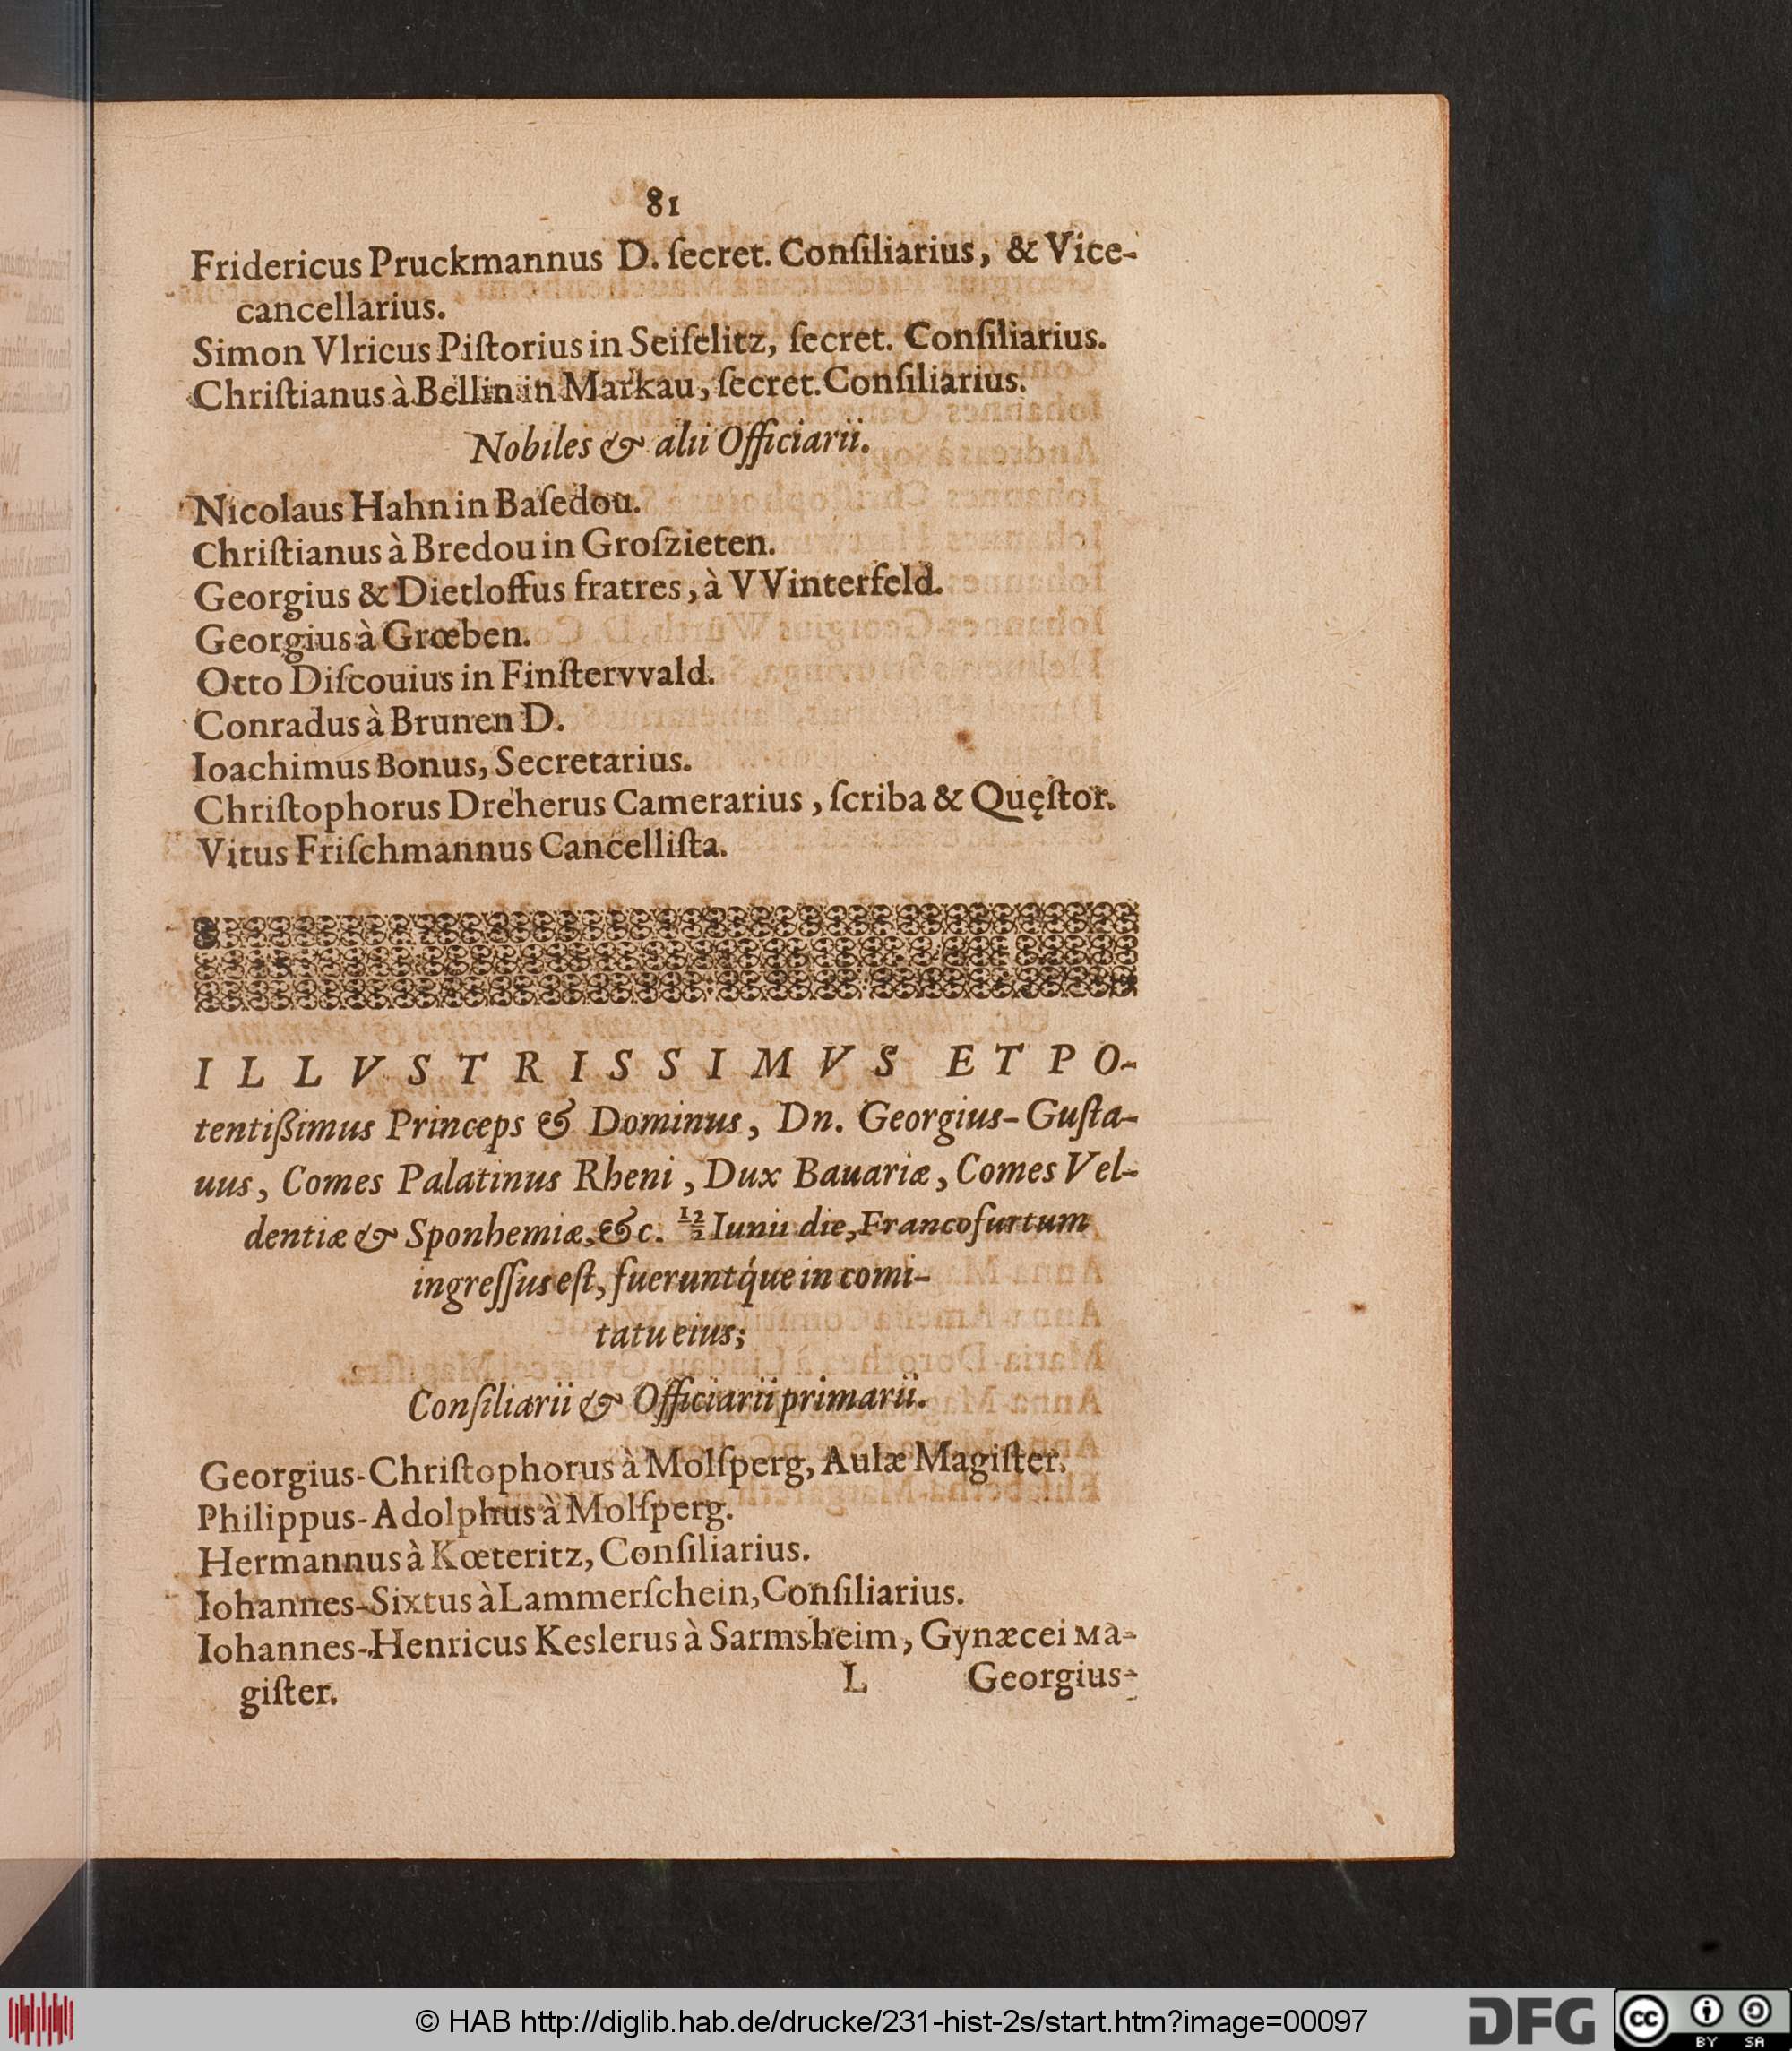 81
Fridericus Pruckmannus D. ſecret. Conſiliarius, & Vice-
cancellarius.
Simon Vlricus Piſtorius in Seiſelitz, ſecret. Conſiliarius.
Chriſtianus à Bellin in Markau, ſecret. Conſiliarius.
Nobiles & alii Officiarii.
Nicolaus Hahn in Baſedou.
Chriſtianus à Bredou in Groſzieten.
Georgius & Dietloffus fratres, à VVinterfeld.
Georgius à Grœben.
Otto Diſcouius in Finſtervvald.
Conradus à Brunen D.
Ioachimus Bonus, Secretarius.
Chriſtophorus Dreherus Camerarius, ſcriba & Quęſtor.
Vitus Friſchmannus Cancelliſta.
ILLVSTRISSIMVS ET PO-
tentißimus Princeps & Dominus, Dn. Georgius-Guſta-
uus, Comes Palatinus Rheni, Dux Bauariæ, Comes Vel-
dentiæ & Sponhemiæ, &c. 12/2 Iunii die, Francofurtum
ingreſſus eſt, fuerunt́que in comi-
tatu eius;
Conſiliarii & Officiarii primarii.
Georgius-Chriſtophorus à Molſperg, Aulæ Magiſter.
Philippus-Adolphus à Molſperg.
Hermannus à Kœteritz, Conſiliarius.
Iohannes-Sixtus à Lammerſchein, Conſiliarius.
Iohannes-Henricus Keslerus à Sarmsheim, Gynæcei Ma-
giſter.
L Georgius-
© HAB http://diglib.hab.de/drucke/231-hist-2s/start.htm?image=00097
DFG
cc
BY SA